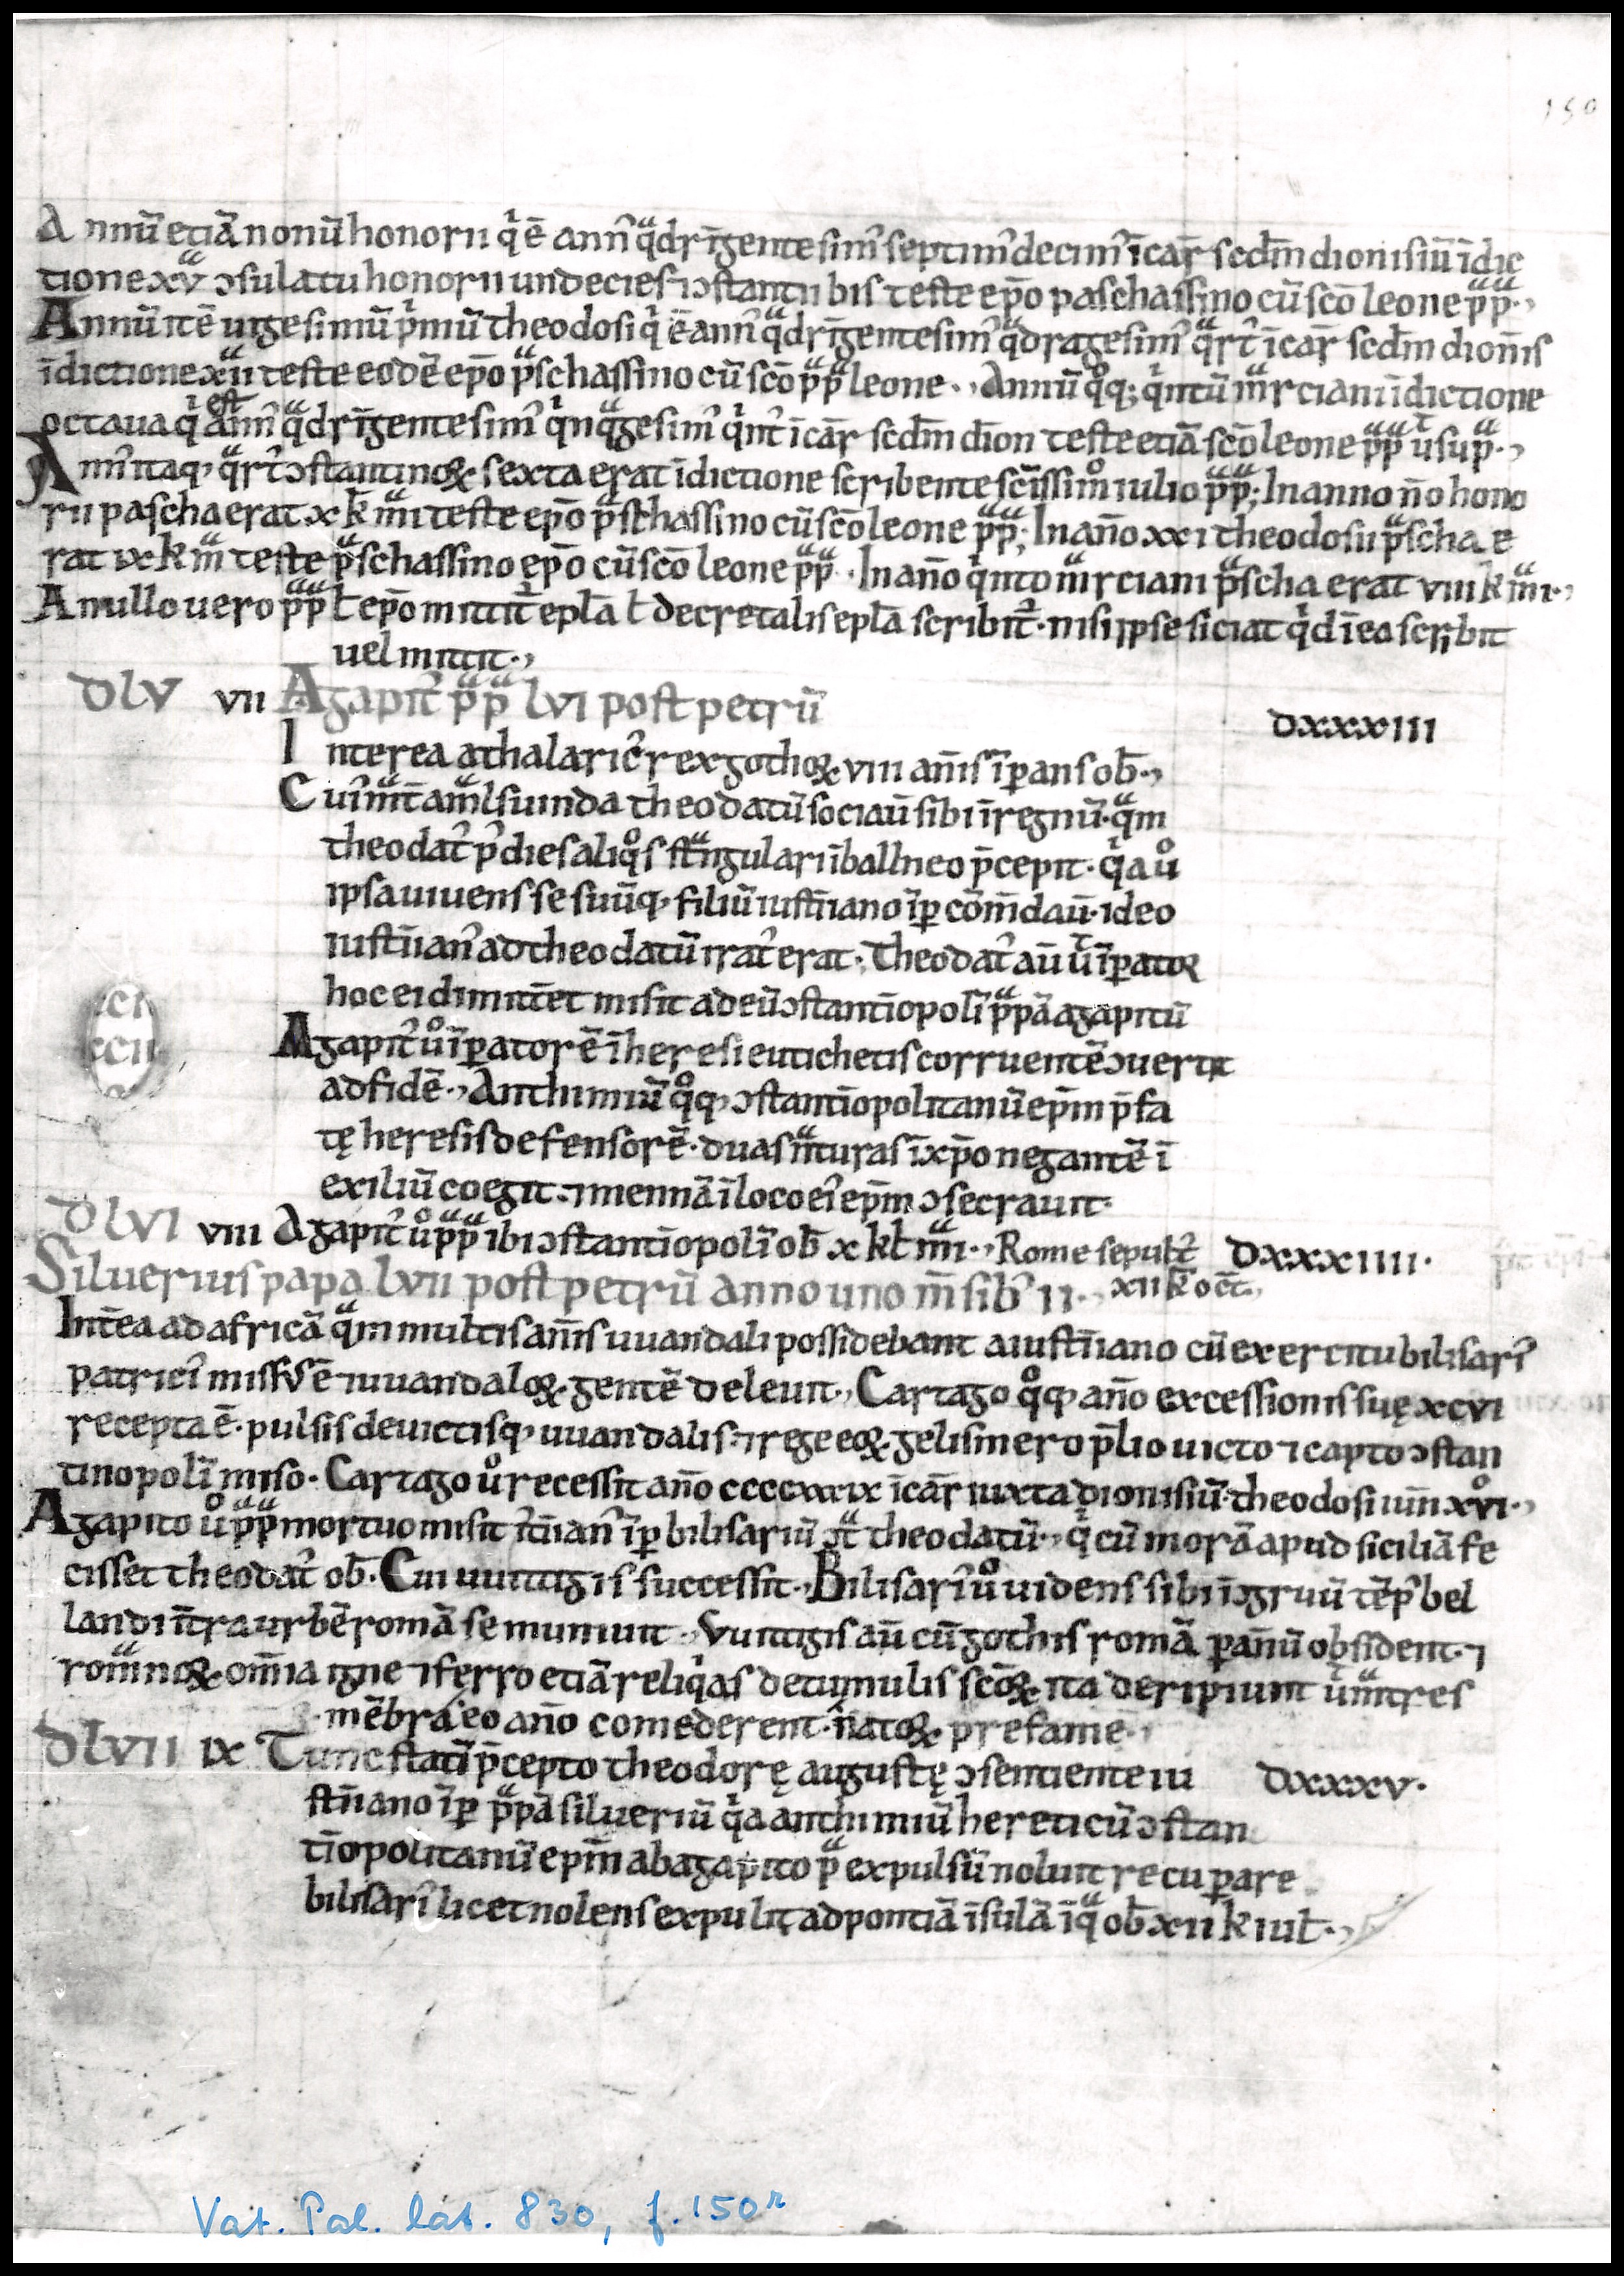 150
Annū etiā nonū honorii qͥ ē ann᷒ qᵃdrīgentesim᷒ septim᷒ decim᷒ īcar̄ scdm̄ dionisiū īdic
tione xvᵃ ɔsulatu honorii undecies ⁊ ɔstantii bis teste ep̄o paschassino cū scō leone pᵃpᵃ.,
Annū itē uigesimū pͥmū theodosi qͥ ē ann᷒ qᵃdrīgentesim᷒ qᵃdragesim᷒ qᵃrt᷒ īcar̄ scdm̄ dionis̄
īdictione xııᵃ teste eodē ep̄o pᵃschassino cū scō pᵃpᵃ leone., Annū qͦq; qͥntū mᵃrciani īdictione
octaua qͥ est ann᷒ qᵃdrīgentesim᷒ qͥnqᵃgesim᷒ qͥnt᷒ īcar̄ scdm̄ dion̄ teste etiā scō leone pᵃpᵃ ut̄ supᵃ.,
Ann᷒ itaq, qᵃrt᷒ ɔstantinoꝝ sexta erat īdictione scribente scīssimͦ iulio pᵃpᵃ; In anno n̄o hono
rii pascha erat x k̄ mᵃi teste ep̄o pᵃschassino cū scō leone pᵃpᵃ; In an̄o xxi theodosii pᵃscha e
rat ix k mᵃ teste pᵃschassino ep̄o cū scō leone pᵃpᵃ. In an̄o qͥnto mᵃrciani pᵃscha erat viii k mᵃi.,
A nullo uero pᵃpᵃ ł ep̄o mittit᷑ epl̄a ł decretalis epl̄a scribit᷑. nisi ipse sciat qͥd ī ea scribit
uel mittit.,
DLV vii Agapit᷒ pᵃpᵃ lvi post petrū
DXXXIII
Interea athalaric᷒ rex gothoꝝ viii an̄is īꝑans ob̄.,
Cui᷒ mᵃt̄ amᵃlsuinda theodatū sociauı̄ sibi ī regnū. qᵃm
theodat᷒ p᷒ dies aliqͦs stᵃngulari ī ballneo p̄cepit. qͥa uͦ
ipsa uiuens se suūq, filiū iustīniano īꝑ com̄dauı̄. ideo
iustīnian᷒ ad theodatū irat᷒ erat. Theodat᷒ aū ut̄ īꝑatoꝝ
hoc ei dimittēt misit ad eū ɔstantīopolī pᵃpā agapitū
Agapit᷒ uͦ īꝑatorē ī heresi eutichetis corruentē ɔuertit
ad fidē., Anthimiū qͦq, ɔstantīopolitanū ep̄m p̄fa
tę heresis defensorē. duas nᵃturas ī xp̄o negantē ī
exiliū coegit. ⁊ mennā ī loco ei᷒ ep̄m ɔsecrauit.
DLVI viii Agapit᷒ uͦ pᵃpᵃ ibi ɔstantīopolī ob̄ x kł mᵃi., Rome sepult᷒ DXXXIIII.
Siluerius papa lvii post petrū anno uno m̄sib᷒ ii., xii k̄ oct̄.,
Int̄ea ad africā qᵃm multis an̄is uuandali possidebant a iustīniano cū exercitu bilisari᷒
patrici᷒ miss᷒ ē ⁊ uuandaloꝝ gentē deleuit., Cartago qͦq, an̄o excessionis suę xcvi
recepta ē. pulsis deuictisq, uuandalis. ⁊ rege eoꝝ gelismero p̄lio uicto ⁊ capto ɔstan
tinopolī miso. Cartago uͦ recessit an̄o ccccxxxix īcar̄ iuxta dionisiū. theodosi iun̄ xvͦi.,
Agapito uͦ pᵃpᵃ mortuo misit i᷒tīnian᷒ īꝑ bilisariū ɔtᵃ theodatū., qͥ cū morā apud siciliā fe
cisset theodat᷒ ob̄. Cui uuitigis successit., Bilisari᷒ uͦ uidens sibi īɔgruū tēp᷒ bel
landi īntra urbē romā se muniuit., Vuitigis aū cū gothis romā ꝑ an̄ū obsident. ⁊
romᵃnoꝝ om̄ia igne ⁊ ferro etiā reliqͥas de tumulis scōꝝ ita deripiunt ut̄ mᵃtres
mēbra eo an̄o comederent. n̄atoꝝ pre famē.
DLVII ix Tunc statī p̄cepto theodorę augustę ɔsentiente iu DXXXV.
stīniano īꝑ pᵃpā siluerıū qͥa anthimiū hereticū ɔstan
tīopolitanū ep̄m ab agapito pᵃ expulsū noluit recuꝑare
bilisari᷒ licet nolens expulit ad pontiā īsulā ī qᵃ ob̄ xii k iuł.,
Vat. Pal. lat. 830, f. 150ʳ